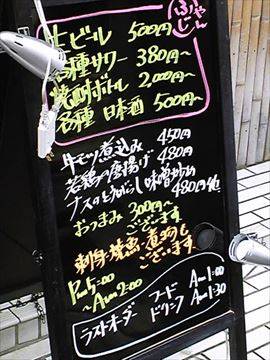 生ビール 500円
各種サワー 380円〜
焼酎ボトル 2,000円〜
各種 日本酒 500円〜
牛モツ煮込み 450円
若鶏の唐揚げ 480円
ナスととうがらし味噌炒め 480円 他
おつまみ 300円〜
ございます
刺身・焼魚・
ございます
Pm5:00
〜Am2:00
ラストオーダー フード Am1:00
ドリンク Am1:30